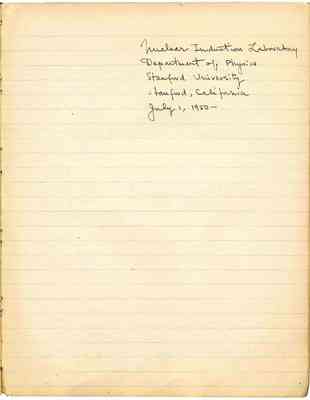 Nuclear Induction Laboratory
Department of Physics
Stanford University
Stanford, California
July 1, 1950 —